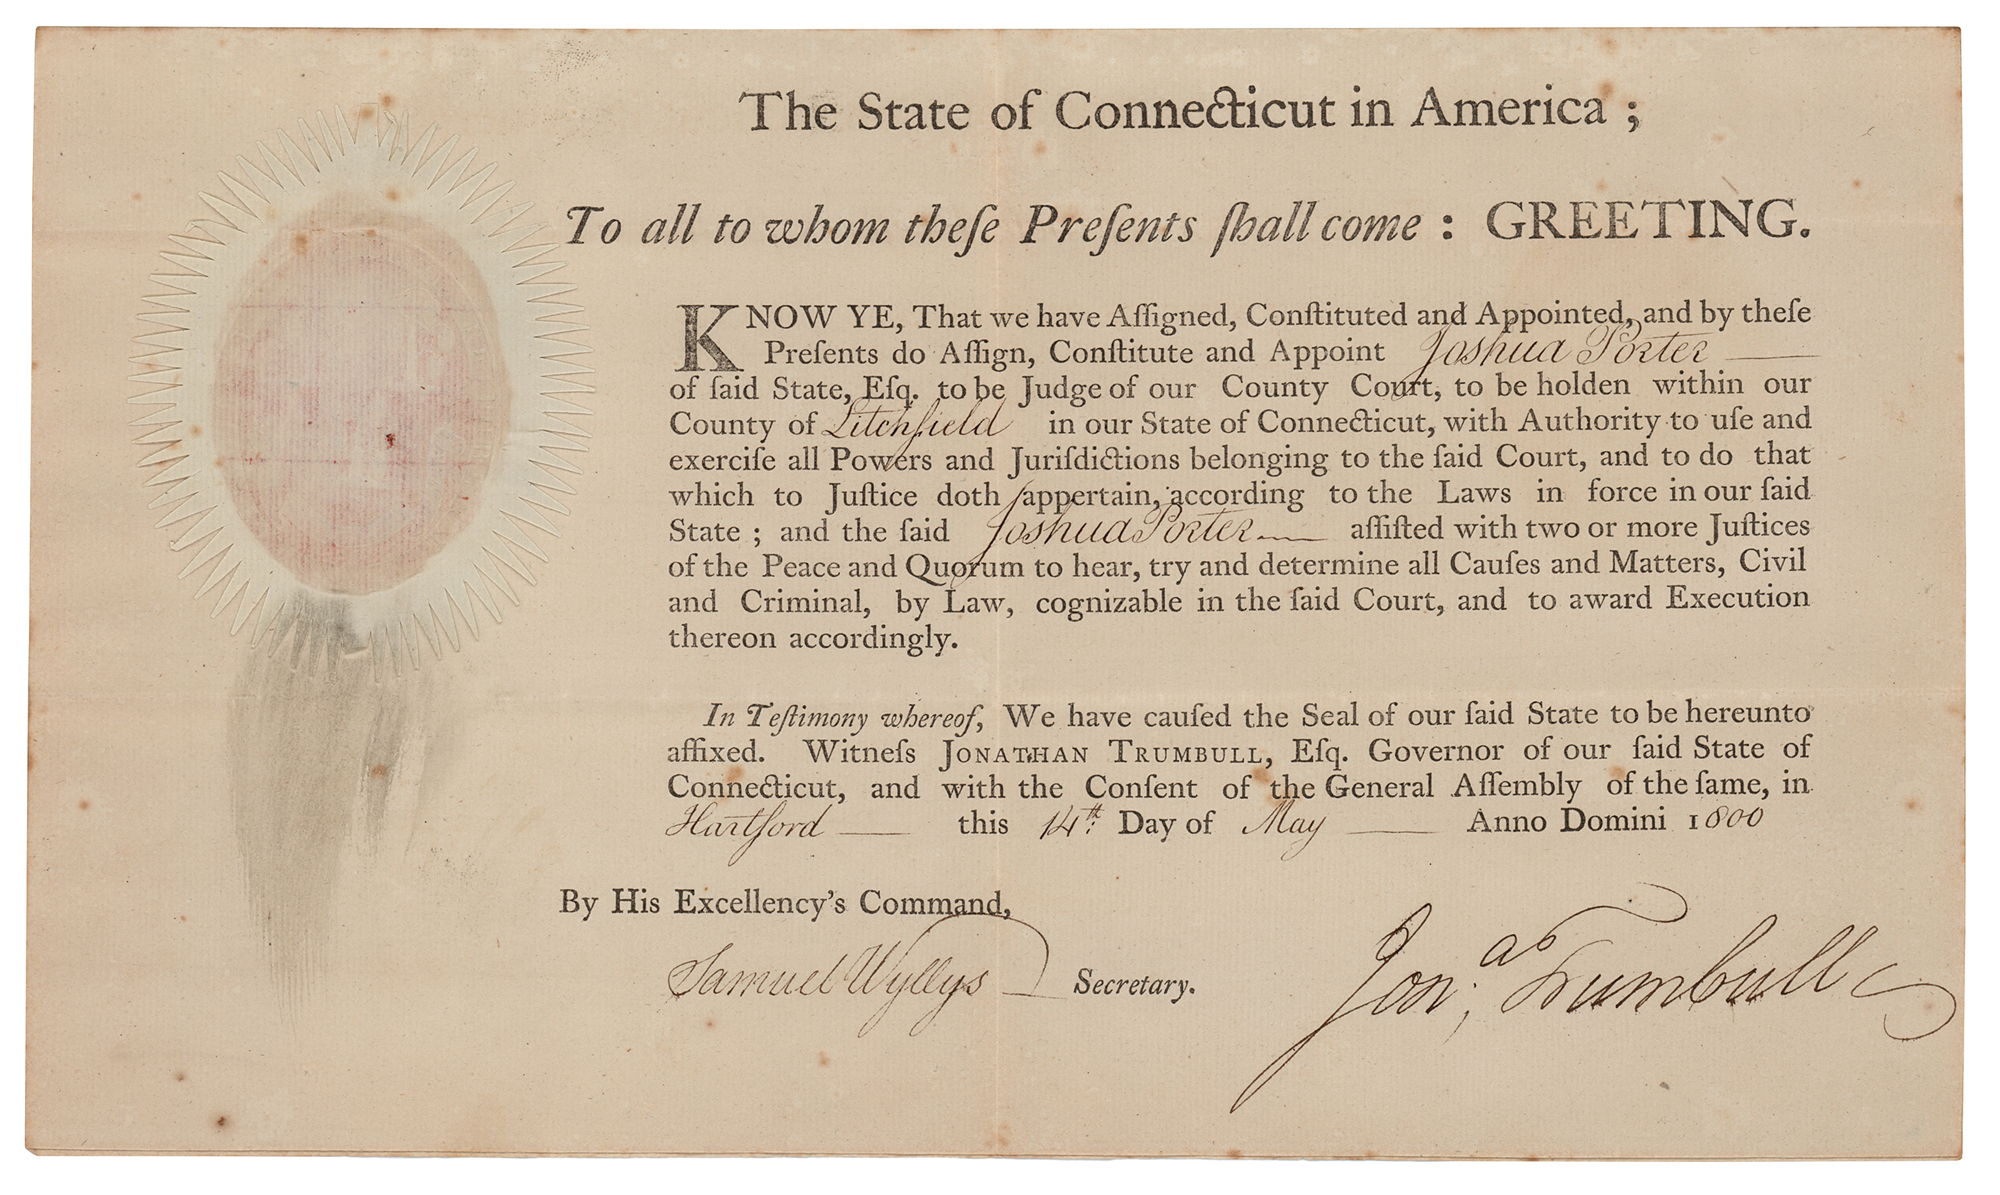 The State of Connecticut in America ;
To all to whom theſe Preſents ſhall come : GREETING.
KNOW YE, That we have Aſſigned, Conſtituted and Appointed, and by theſe
Preſents do Aſſign, Conſtitute and Appoint Joshua Porter —
of ſaid State, Eſq. to be Judge of our County Court, to be holden within our
County of Litchfield in our State of Connecticut, with Authority to uſe and
exerciſe all Powers and Juriſdictions belonging to the ſaid Court, and to do that
which to Juſtice doth appertain, according to the Laws in force in our ſaid
State ; and the ſaid Joshua Porter — aſſiſted with two or more Juſtices
of the Peace and Quorum to hear, try and determine all Cauſes and Matters, Civil
and Criminal, by Law, cognizable in the ſaid Court, and to award Execution
thereon accordingly.
In Teſtimony whereof, We have cauſed the Seal of our ſaid State to be hereunto
affixed. Witneſs JONATHAN TRUMBULL, Eſq. Governor of our ſaid State of
Connecticut, and with the Conſent of the General Aſſembly of the ſame, in
Hartford — this 14th Day of May — Anno Domini 1800
By His Excellency's Command,
Samuel Wyllys Secretary.
Jonª; Trumbull